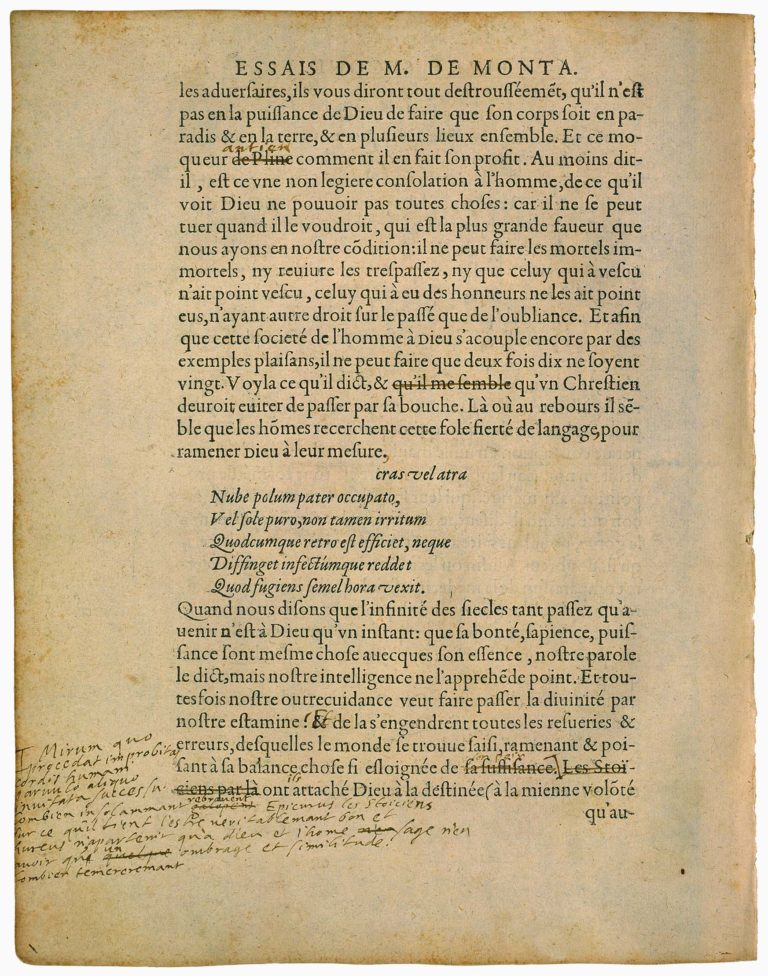 ESSAIS DE M. DE MONTA.
les aduersaires, ils vous diront tout destrousséemẽt, qu'il n'est
pas en la puissance de Dieu de faire que son corps soit en pa-
radis & en la terre, & en plusieurs lieux ensemble. Et ce mo-
antien
queur de Pline comment il en fait son profit. Au moins dit-
il, est ce vne non legiere consolation à l'homme, de ce qu'il
voit Dieu ne pouuoir pas toutes choses: car il ne se peut
tuer quand il le voudroit, qui est la plus grande faueur que
nous ayons en nostre cõdition: il ne peut faire les mortels im-
mortels, ny reuiure les trespassez, ny que celuy qui à vescu
n'ait point vescu, celuy qui à eu des honneurs ne les ait point
eus, n'ayant autre droit sur le passé que de l'oubliance. Et afin
que cette societé de l'homme à Dieu s'acouple encore par des
exemples plaisans, il ne peut faire que deux fois dix ne soyent
vingt. Voyla ce qu'il dict, & qu'il me semble qu'vn Chrestien
deuroit euiter de passer par sa bouche. Là où au rebours il sẽ-
ble que les hõmes recerchent cette fole fierté de langage, pour
ramener Dieu à leur mesure.
cras vel atra
Nube polum pater occupato,
Vel sole puro, non tamen irritum
Quodcumque retro est efficiet, neque
Diffinget infectúmque reddet
Quod fugiens semel hora vexit.
Quand nous disons que l'infinité des siecles tant passez qu'a-
uenir n'est à Dieu qu'vn instant: que sa bonté, sapience, puis-
sance sont mesme chose auecques son essence, nostre parole
le dict, mais nostre intelligence ne l'apprehẽde point. Et tou-
tesfois nostre outrecuidance veut faire passer la diuinité par
nostre estamine: Et de la s'engendrent toutes les resueries &
erreurs, desquelles le monde se trouue saisi, ramenant & poi-
sant à sa balance, chose si esloignée de sa suffisance. Les Stoï-
ils
ciens par là ont attaché Dieu à la destinée (à la mienne volõté
qu'au-
Mirum quo
procedat improbitas
cordis humani
paruulo aliquo
inuitata successu
ombien insolammant rebrouent Epicurus les Stoiciens
sur ce quil tient l'estre veritablemant bon et
hureus n'apartenir qu'a dieu et l'home sage n'en
auoir que un quelque ombrage et similitude:
combien temereremant